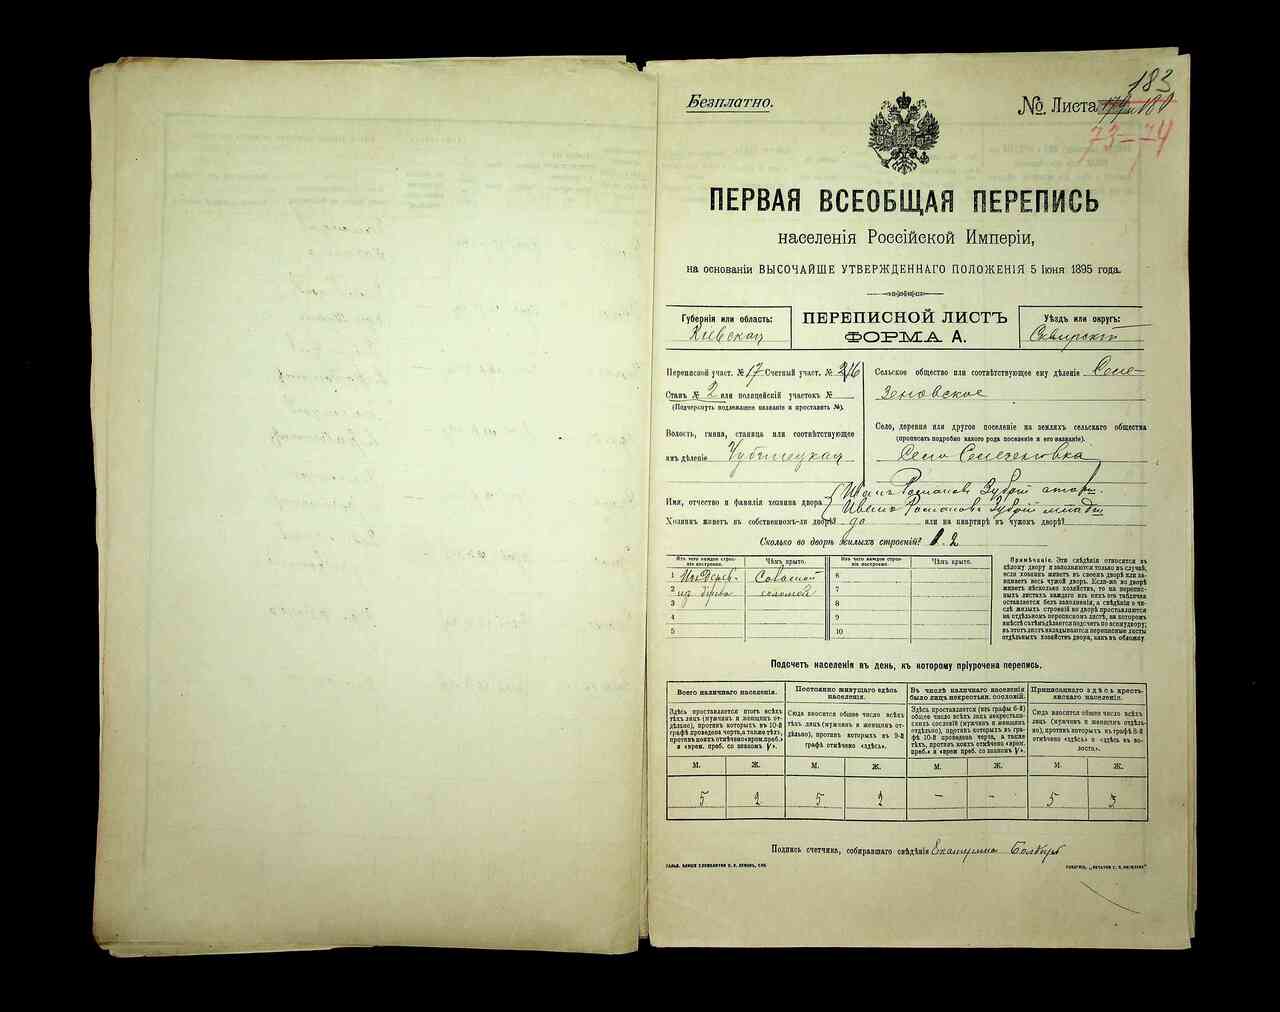 183
Безплатно.
№ Листа
73-74
ПЕРВАЯ ВСЕОБЩАЯ ПЕРЕПИСЬ
населенія Россійской Имперіи,
на основаніи ВЫСОЧАЙШЕ УТВЕРЖДЕННАГО ПОЛОЖЕНІЯ 5 Іюня 1895 года.
Губернія или область:
Кіевская
ПЕРЕПИСНОЙ ЛИСТЪ
ФОРМА А.
Уѣздъ или округъ:
Сквирскій
Переписной участ. № 17 Счетный участ. №
Станъ № 2 или полицейскій участокъ №
(Подчеркнуть подлежащее названіе и проставить №).
Волость, гмина, станица или соотвѣтствующее
имъ дѣленіе
Сельское общество или соотвѣтствующее ему дѣленіе Селе-
зеновское
Село, деревня или другое поселеніе на земляхъ сельскаго общества
(прописать подробно какого рода поселеніе и его названіе).
Село Селезеновка
Имя, отчество и фамилія хозяина двора Иванъ Романовъ Зубрій старш.
Иванъ Романовъ Зубрій младш
Хозяинъ живетъ въ собственномъ-ли дворѣ? да или на квартирѣ въ чужомъ дворѣ?
Сколько во дворѣ жилыхъ строеній? 2
Изъ чего каждое строе-
ніе построено.
Чѣмъ крыто.
Изъ чего каждое строе-
ніе построено.
Чѣмъ крыто.
1 Изъ Дерев. Соломой 6
2 из дерева соломой 7
3 8
4 9
5 10
Примѣчаніе. Эти свѣдѣнія относятся къ
цѣлому двору и заполняются только въ случаѣ,
если хозяинъ живетъ въ своемъ дворѣ или за-
нимаетъ весь чужой дворъ. Если-же во дворѣ
живетъ нѣсколько хозяйствъ, то на перепис-
ныхъ листахъ каждаго изъ нихъ эта табличка
оставляется безъ заполненія, а свѣдѣнія о чи-
слѣ жилыхъ строеній во дворѣ проставляются
на отдѣльномъ переписномъ листѣ, на которомъ
вмѣстѣ съ тѣмъ дѣлается подсчетъ по всему двору;
въ этотъ листъ вкладываются переписные листы
отдѣльныхъ хозяйствъ двора, какъ въ обложку.
Подсчетъ населенія въ день, къ которому пріурочена перепись.
Всего наличнаго населенія.
Здѣсь проставляется итогъ всѣхъ
тѣхъ лицъ (мужчинъ и женщинъ от-
дѣльно), противъ которыхъ въ 10-й
графѣ проведена черта, а также тѣхъ,
противъ коихъ отмѣчено «врем. преб.»
и «врем. преб. со знакомъ V».
Постоянно живущаго здѣсь
населенія.
Сюда вносится общее число всѣхъ
тѣхъ лицъ (мужчинъ и женщинъ от-
дѣльно), противъ которыхъ въ 9-й
графѣ отмѣчено «здѣсь».
Въ числѣ наличнаго населенія
было лицъ некрестьян. сословій.
Здѣсь проставляется (изъ графы 6-й)
общее число всѣхъ лицъ некрестьян-
скихъ сословій (мужчинъ и женщинъ
отдѣльно), противъ которыхъ въ гра-
фѣ 10-й проведена черта, а также
тѣхъ, противъ коихъ отмѣчено «врем.
преб.» и «врем. преб. со знакомъ V».
Приписаннаго здѣсь кресть-
янскаго населенія.
Сюда вносится общее число всѣхъ
лицъ (мужчинъ и женщинъ отдѣль-
но), противъ которыхъ въ графѣ 8-й
отмѣчено «здѣсь» и «здѣсь въ во-
лости».
М. Ж. М. Ж. М. Ж. М. Ж.
5 2 5 2 - - 5 3
Подпись счетчика, собиравшаго свѣдѣнія Екатерина